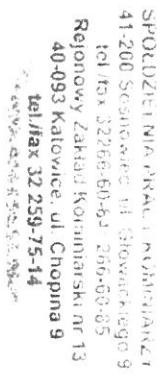 SPÓŁDZIELNIA PRACY KOMINIARZY
41-200 Sosnowiec ul. Głowackiego 9
tel./fax 32 266-60-84 266-60-85
Rejonowy Zakład Kominiarski nr 13
40-093 Katowice, ul. Chopina 9
tel./fax 32 259-75-14